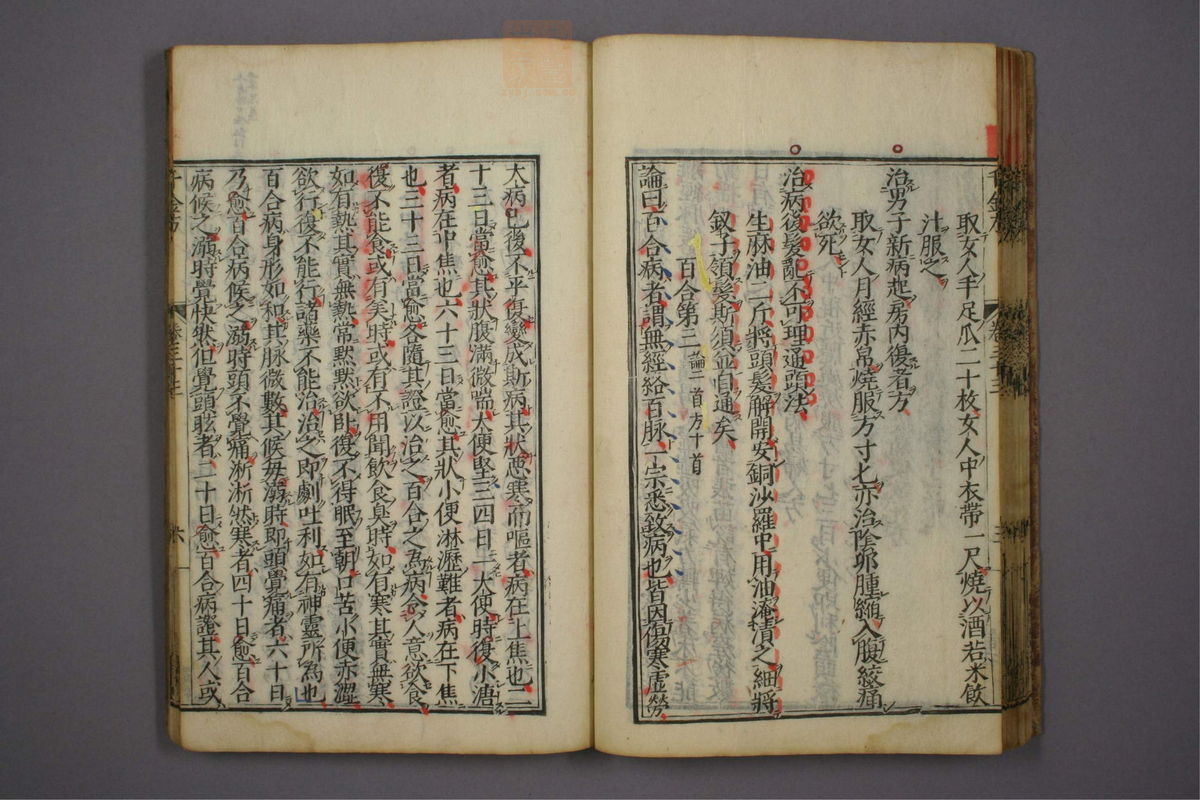 取女人手足爪二十枚女人中衣帶一尺燒以酒若米飲
汁服之
治男子新病起房内復者方
取女人月經赤帛燒服方寸匕亦治陰卵腫縮入腹絞痛
欲死
治病後髮亂不可理通頭法
生麻油二斤將頭髮解開安銅沙羅中用油淹漬之細將
釵子領髮斯須並自通矣
百合第三論一首方十首
論曰百合病者謂無經絡百脉一宗悉致病也皆因傷寒虛勞
大病已後不平復變成斯病其狀惡寒而嘔者病在上焦也二
十三日當愈其狀腹滿微喘大便堅三四日一大便時復小溏
者病在中焦也六十三日當愈其狀小便淋瀝難者病在下焦
也三十三日當愈各隨其證以治之百合之為病令人意欲食
復不能食或有美時或有不用聞飲食臭時如有寒其實無寒
如有熱其實無熱常默默欲臥復不得眠至朝口苦小便赤澀
欲行復不能行諸藥不能治治之即劇吐利如有神靈所為也
百合病身形如和其脉微數其候每溺時即頭覺痛者六十日
乃愈百合病候之溺時頭不覺痛淅淅然寒者四十日愈百合
病候之溺時覺快然但覺頭眩者二十日愈百合病證其人或
六